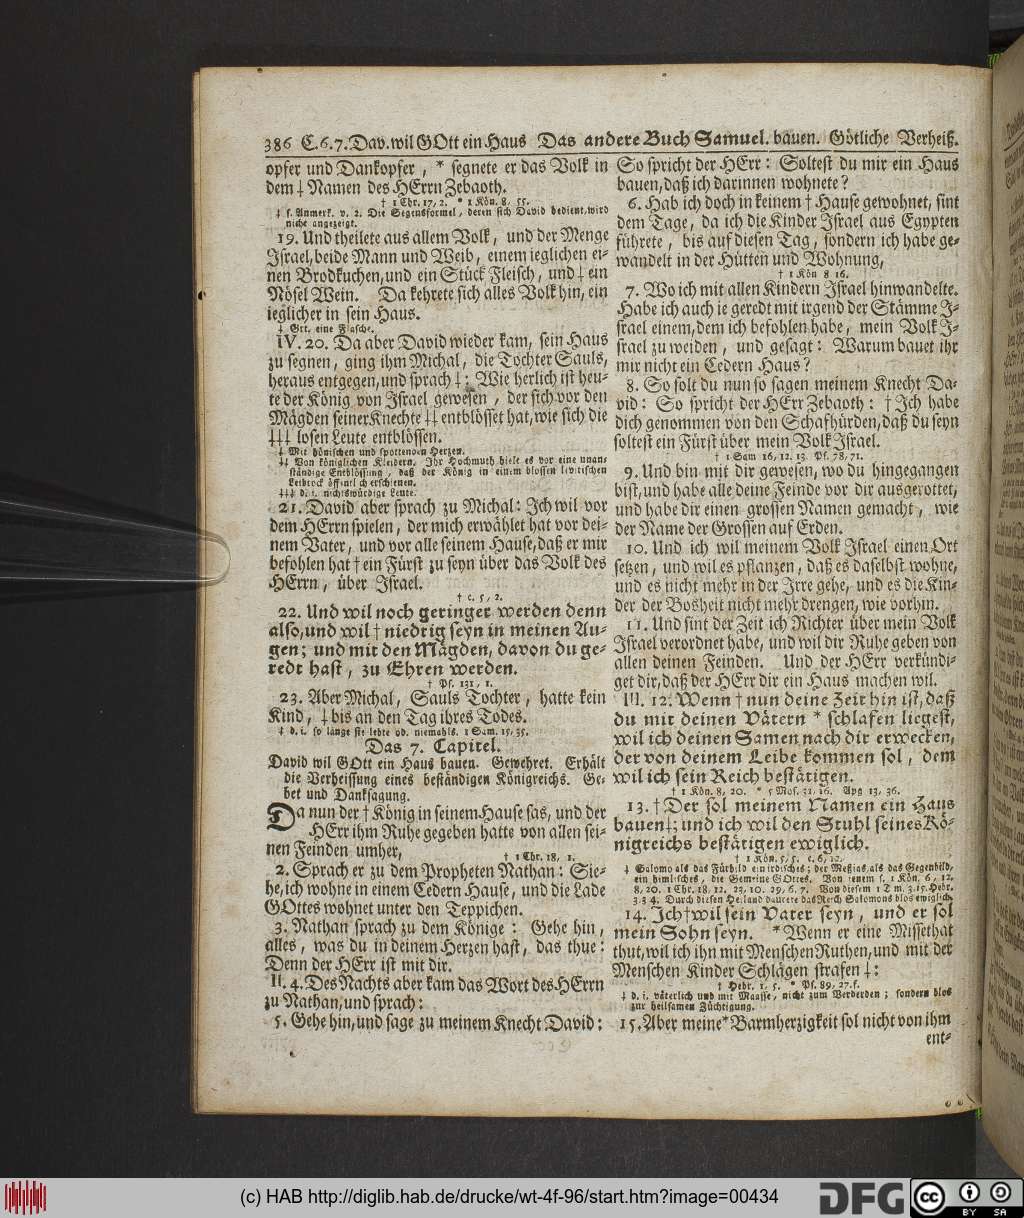 386 C.6.7. Dav. wil GOtt ein Haus Das andere Buch Samuel. bauen. Götliche Verheiß.
opfer und Dankopfer, * segnete er das Volk in
dem ‡ Namen des HErrn Zebaoth.
† 1 Chr. 17, 2. * 1 Kön. 8, 55.
‡ s. Anmerk. v. 2. Die Segensformel, deren sich David bedient, wird
nicht angezeigt.
19. Und theilete aus allem Volk, und der Menge
Israel, beide Mann und Weib, einem ieglichen ei-
nen Brodkuchen, und ein Stück Fleisch, und ‡ ein
Nösel Wein. Da kehrete sich alles Volk hin, ein
ieglicher in sein Haus.
‡ Grt. eine Flasche.
IV. 20. Da aber David wieder kam, sein Haus
zu segnen, ging ihm Michal, die Tochter Sauls,
heraus entgegen, und sprach ‡: Wie herlich ist heu-
te der König von Israel gewesen, der sich vor den
Mägden seiner Knechte ‡‡ entblösset hat, wie sich die
‡‡‡ losen Leute entblössen.
‡ Mit hönischen und spottenden Herzen.
‡‡ Von königlichen Kleidern. Ihr Hochmuth hielt es vor eine unan-
ständige Entblössung, daß der König in einem blossen levitischen
Leibrock öffentlich erschienen.
‡‡‡ d. i. nichtswürdige Leute.
21. David aber sprach zu Michal: Ich wil vor
dem HErrn spielen, der mich erwählet hat vor dei-
nem Vater, und vor alle seinem Hause, daß er mir
befohlen hat † ein Fürst zu seyn über das Volk des
HErrn, über Israel.
† c. 5, 2.
22. Und wil noch geringer werden denn
also, und wil † niedrig seyn in meinen Au-
gen; und mit den Mägden, davon du ge-
redt hast, zu Ehren werden.
† Ps. 131, 1.
23. Aber Michal, Sauls Tochter, hatte kein
Kind, ‡ bis an den Tag ihres Todes.
‡ d. i. so lange sie lebte od. niemahls. 1 Sam. 15, 35.
Das 7. Capitel.
David wil GOtt ein Haus bauen. Gewehret. Erhält
die Verheissung eines beständigen Königreichs. Ge-
bet und Danksagung.
Da nun der † König in seinem Hause sas, und der
HErr ihm Ruhe gegeben hatte von allen sei-
nen Feinden umher,
† 1 Chr. 18, 1.
2. Sprach er zu dem Propheten Nathan: Sie-
he, ich wohne in einem Cedern Hause, und die Lade
GOttes wohnet unter den Teppichen.
3. Nathan sprach zu dem Könige: Gehe hin,
alles, was du in deinem Herzen hast, das thue:
Denn der HErr ist mit dir.
II. 4. Des Nachts aber kam das Wort des HErrn
zu Nathan, und sprach:
5. Gehe hin, und sage zu meinem Knecht David:
So spricht der HErr: Soltest du mir ein Haus
bauen, daß ich darinnen wohnete?
6. Hab ich doch in keinem † Hause gewohnet, sint
dem Tage, da ich die Kinder Israel aus Egypten
führete, bis auf diesen Tag, sondern ich habe ge-
wandelt in der Hütten und Wohnung,
† 1 Kön 8 16.
7. Wo ich mit allen Kindern Israel hinwandelte.
Habe ich auch ie geredt mit irgend der Stämme J-
srael einem, dem ich befohlen habe, mein Volk J-
srael zu weiden, und gesagt: Warum bauet ihr
mir nicht ein Cedern Haus?
8. So solt du nun so sagen meinem Knecht Da-
vid: So spricht der HErr Zebaoth: † Ich habe
dich genommen von den Schafhürden, daß du seyn
soltest ein Fürst über mein Volk Israel.
† 1 Sam 16, 12. 13. Ps. 78, 71.
9. Und bin mit dir gewesen, wo du hingegangen
bist, und habe alle deine Feinde vor dir ausgerottet,
und habe dir einen grossen Namen gemacht, wie
der Name der Grossen auf Erden.
10. Und ich wil meinem Volk Israel einen Ort
setzen, und wil es pflanzen, daß es daselbst wohne,
und es nicht mehr in der Irre gehe, und es die Kin-
der der Bosheit nicht mehr drengen, wie vorhin.
11. Und sint der Zeit ich Richter über mein Volk
Israel verordnet habe, und wil dir Ruhe geben von
allen deinen Feinden. Und der HErr verkündi-
get dir, daß der HErr dir ein Haus machen wil.
III. 12. Wenn † nun deine Zeit hin ist, daß
du mit deinen Vätern * schlafen liegest,
wil ich deinen Samen nach dir erwecken,
der von deinem Leibe kommen sol, dem
wil ich sein Reich bestätigen.
† 1 Kön. 8, 20. * 5 Mos. 31, 16. Apg 13, 36.
13. † Der sol meinem Namen ein Haus
bauen ‡; und ich wil den Stuhl seines Kö-
nigreichs bestätigen ewiglich.
† 1 Kön. 5, 5. c. 6, 12.
‡ Salomo als das Fürbild ein irdisches; der Meßias, als das Gegenbild,
ein himlisches, die Gemeine GOttes. Von jenem s. 1 Kön. 6, 12.
8, 20. 1 Chr. 18, 12. 22, 10. 29, 6. 7. Von diesem 1 Tim. 3, 15. Hebr.
3, 3 4. Durch diesen Heiland daurete das Reich Salomons blos ewiglich.
14. Ich † wil sein Vater seyn, und er sol
mein Sohn seyn. * Wenn er eine Missethat
thut, wil ich ihn mit Menschen Ruthen, und mit der
Menschen Kinder Schlägen strafen ‡:
† Hebr. 1, 5. * Ps. 89, 27. f.
‡ d. i. väterlich und mit Maasse, nicht zum Verderben; sondern blos
zur heilsamen Züchtigung.
15. Aber meine * Barmherzigkeit sol nicht von ihm
ent-
(c) HAB http://diglib.hab.de/drucke/wt-4f-96/start.htm?image=00434
DFG
cc
BY SA